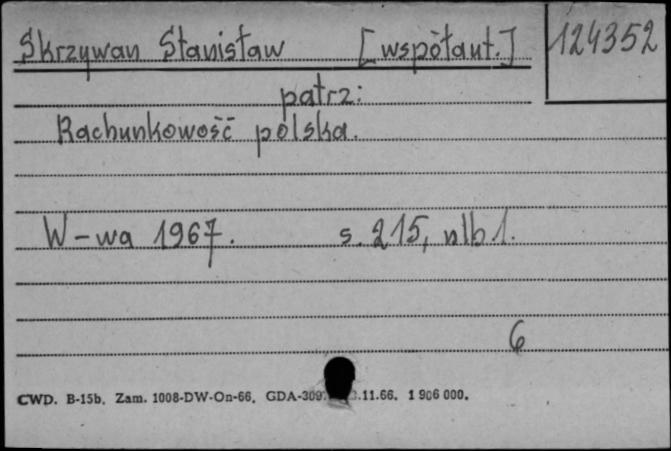 Skrzywan Stanisław [współaut.] 124352
patrz:
Rachunkowość polska.
W-wa 1967. s. 215, nlb 1.
6
CWD. B-15b. Zam. 1008-DW-On-66. GDA-309 .11.66. 1 906 000.